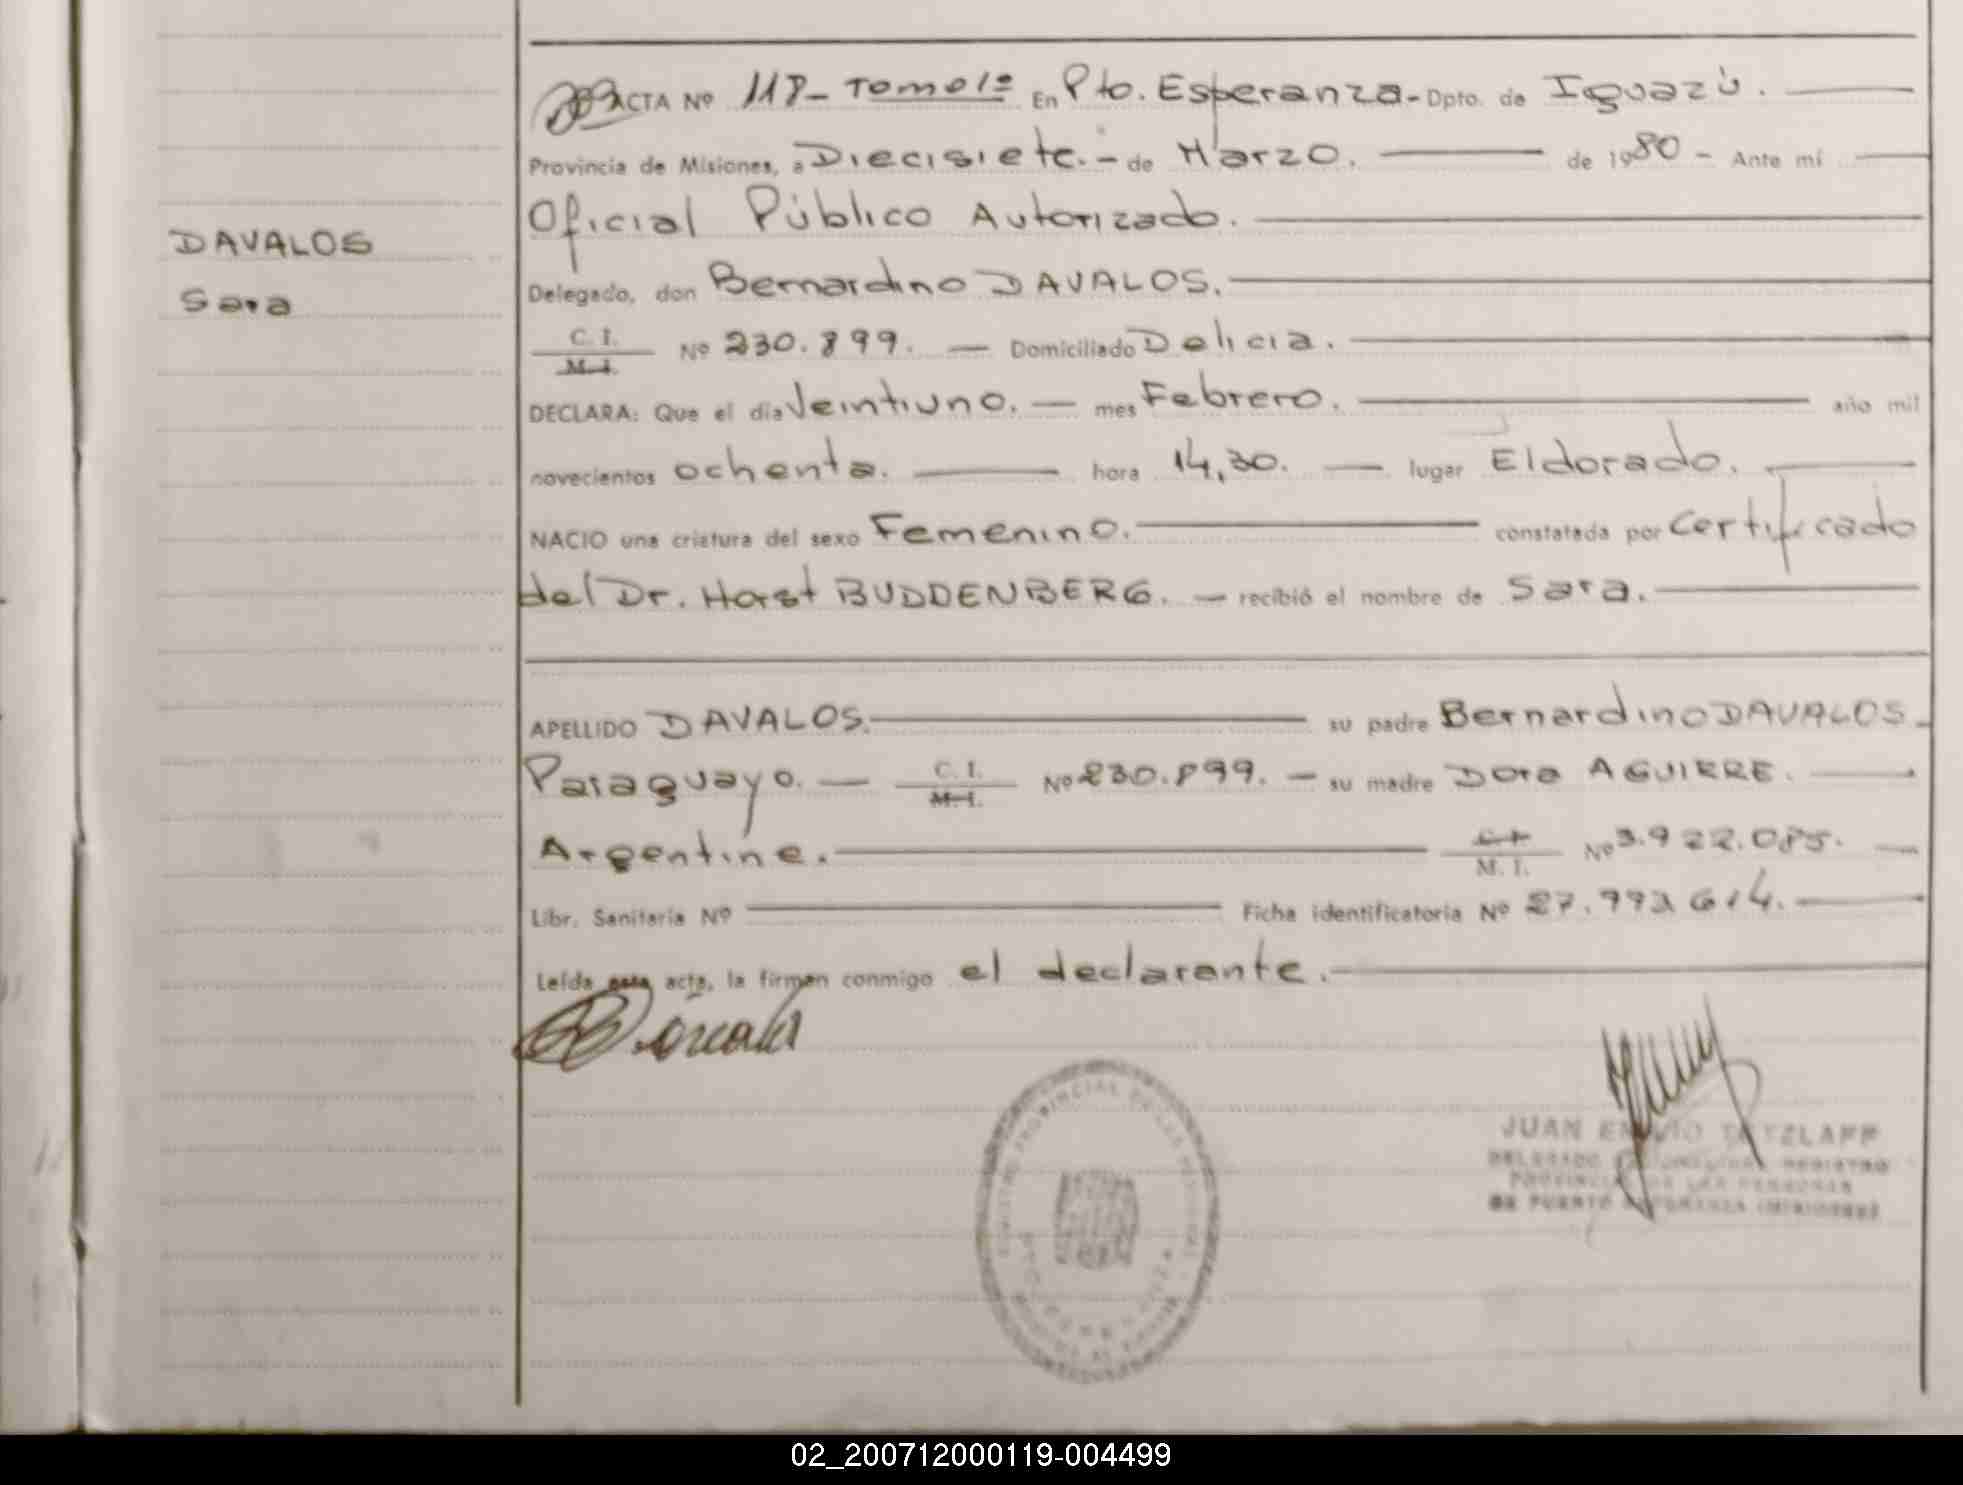 ACTA Nº 118- Tomo 1º En Pto. Esperanza.- Dpto. de Iguazú.
Provincia de Misiones, a Diecisiete.- de Marzo. de 1980 - Ante mí
Oficial Público Autorizado.
DAVALOS
Sara
Delegado, don Bernardino DAVALOS.
C. I.
M. I.
Nº 230.899. — Domiciliado Delicia.
DECLARA: Que el día Veintiuno. — mes Febrero. año mil
novecientos ochenta. hora 14,30. — lugar Eldorado.
NACIO una criatura del sexo Femenino. constatada por Certificado
del Dr. Horst BUDDENBERG. — recibió el nombre de Sara.
APELLIDO DAVALOS. su padre Bernardino DAVALOS.
Paraguayo. — C. I.
M. I.
Nº 230.899. — su madre Dora AGUIRRE.
Argentina. C. I.
M. I.
Nº 3.922.085.
Libr. Sanitaria Nº Ficha identificatoria Nº 27.993.614.
Leída esta acta, la firman conmigo el declarante.
JUAN TETZLAFF
DELEGADO REGISTRO
PROVINCIAL DE LAS PERSONAS
DE PUERTO ESPERANZA (MISIONES)
02_200712000119-004499